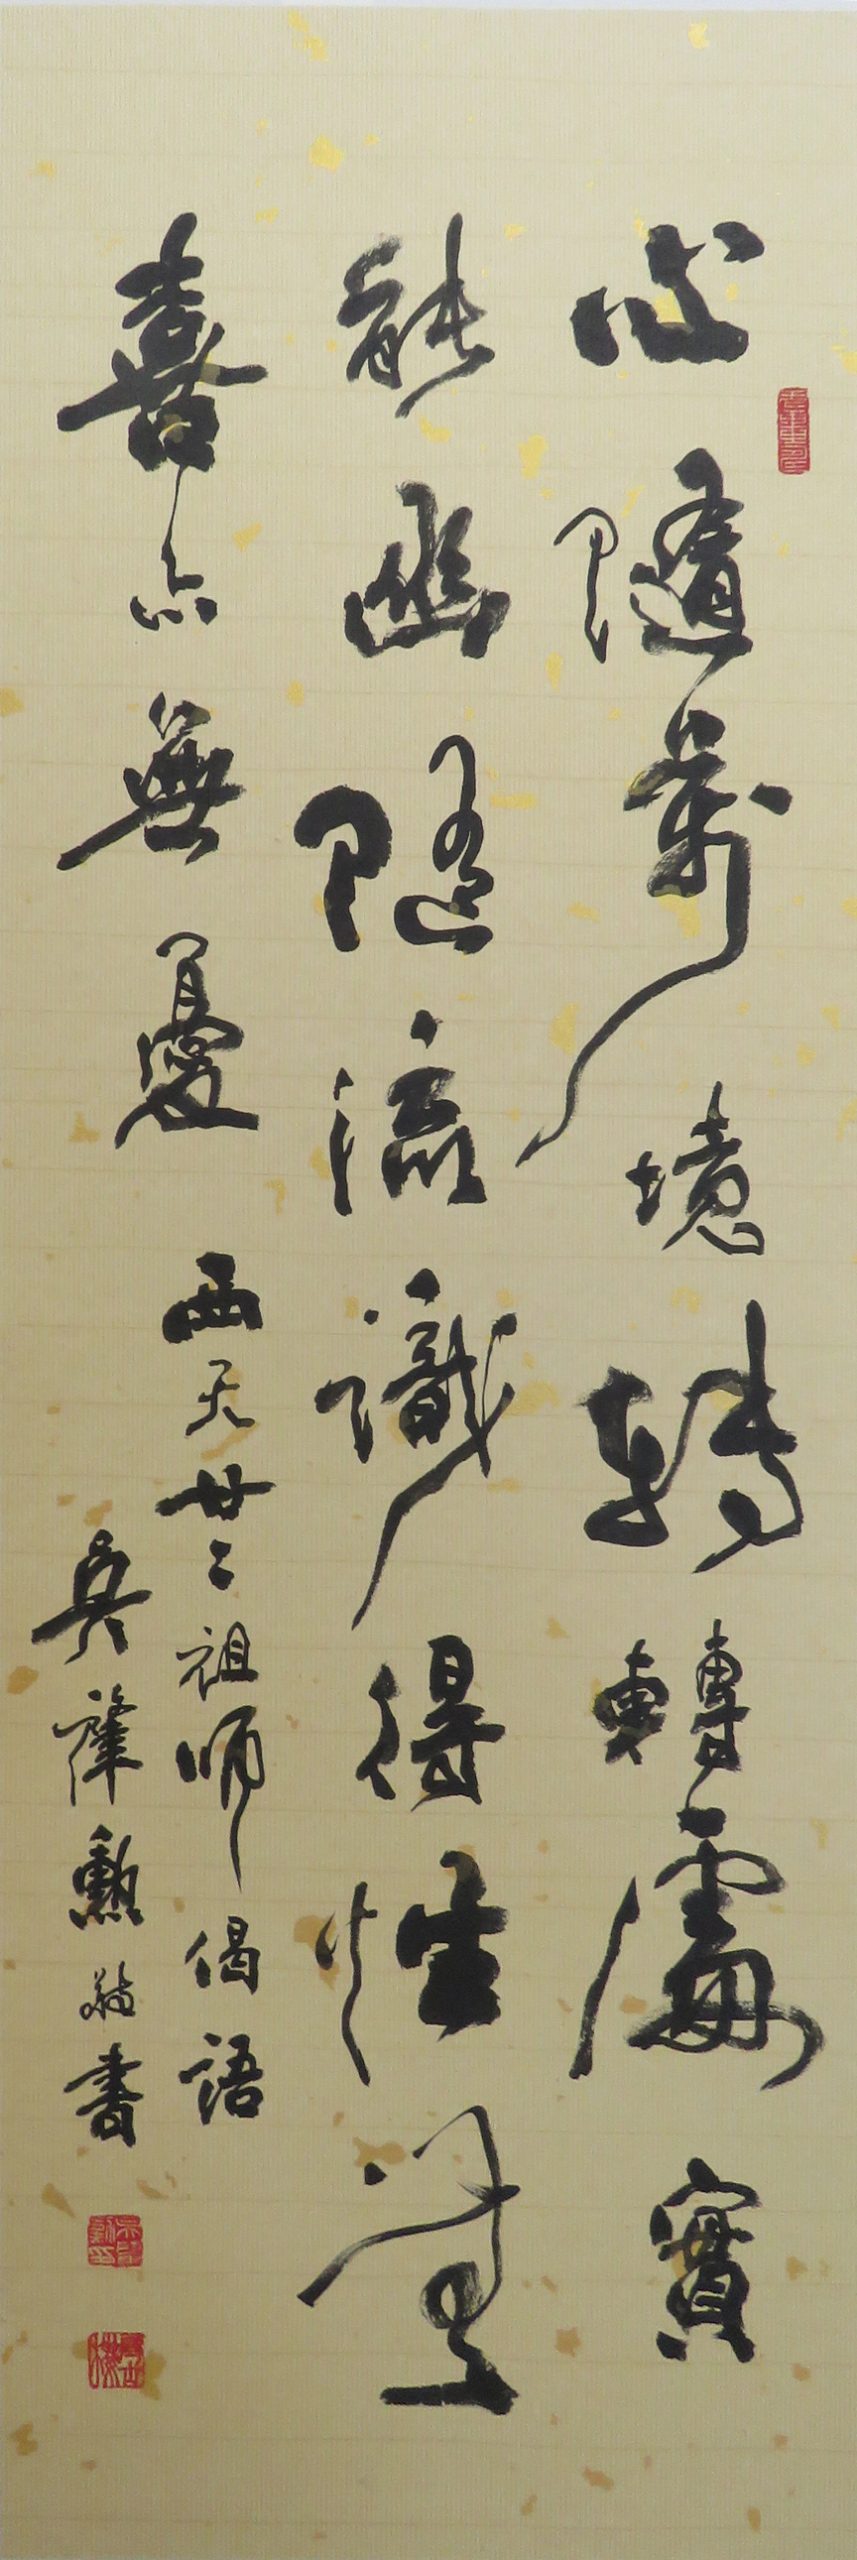 心隨萬境轉轉處實
能幽隨流識得性無
喜亦無憂
西天廿二祖師偈語
吳勳敬書